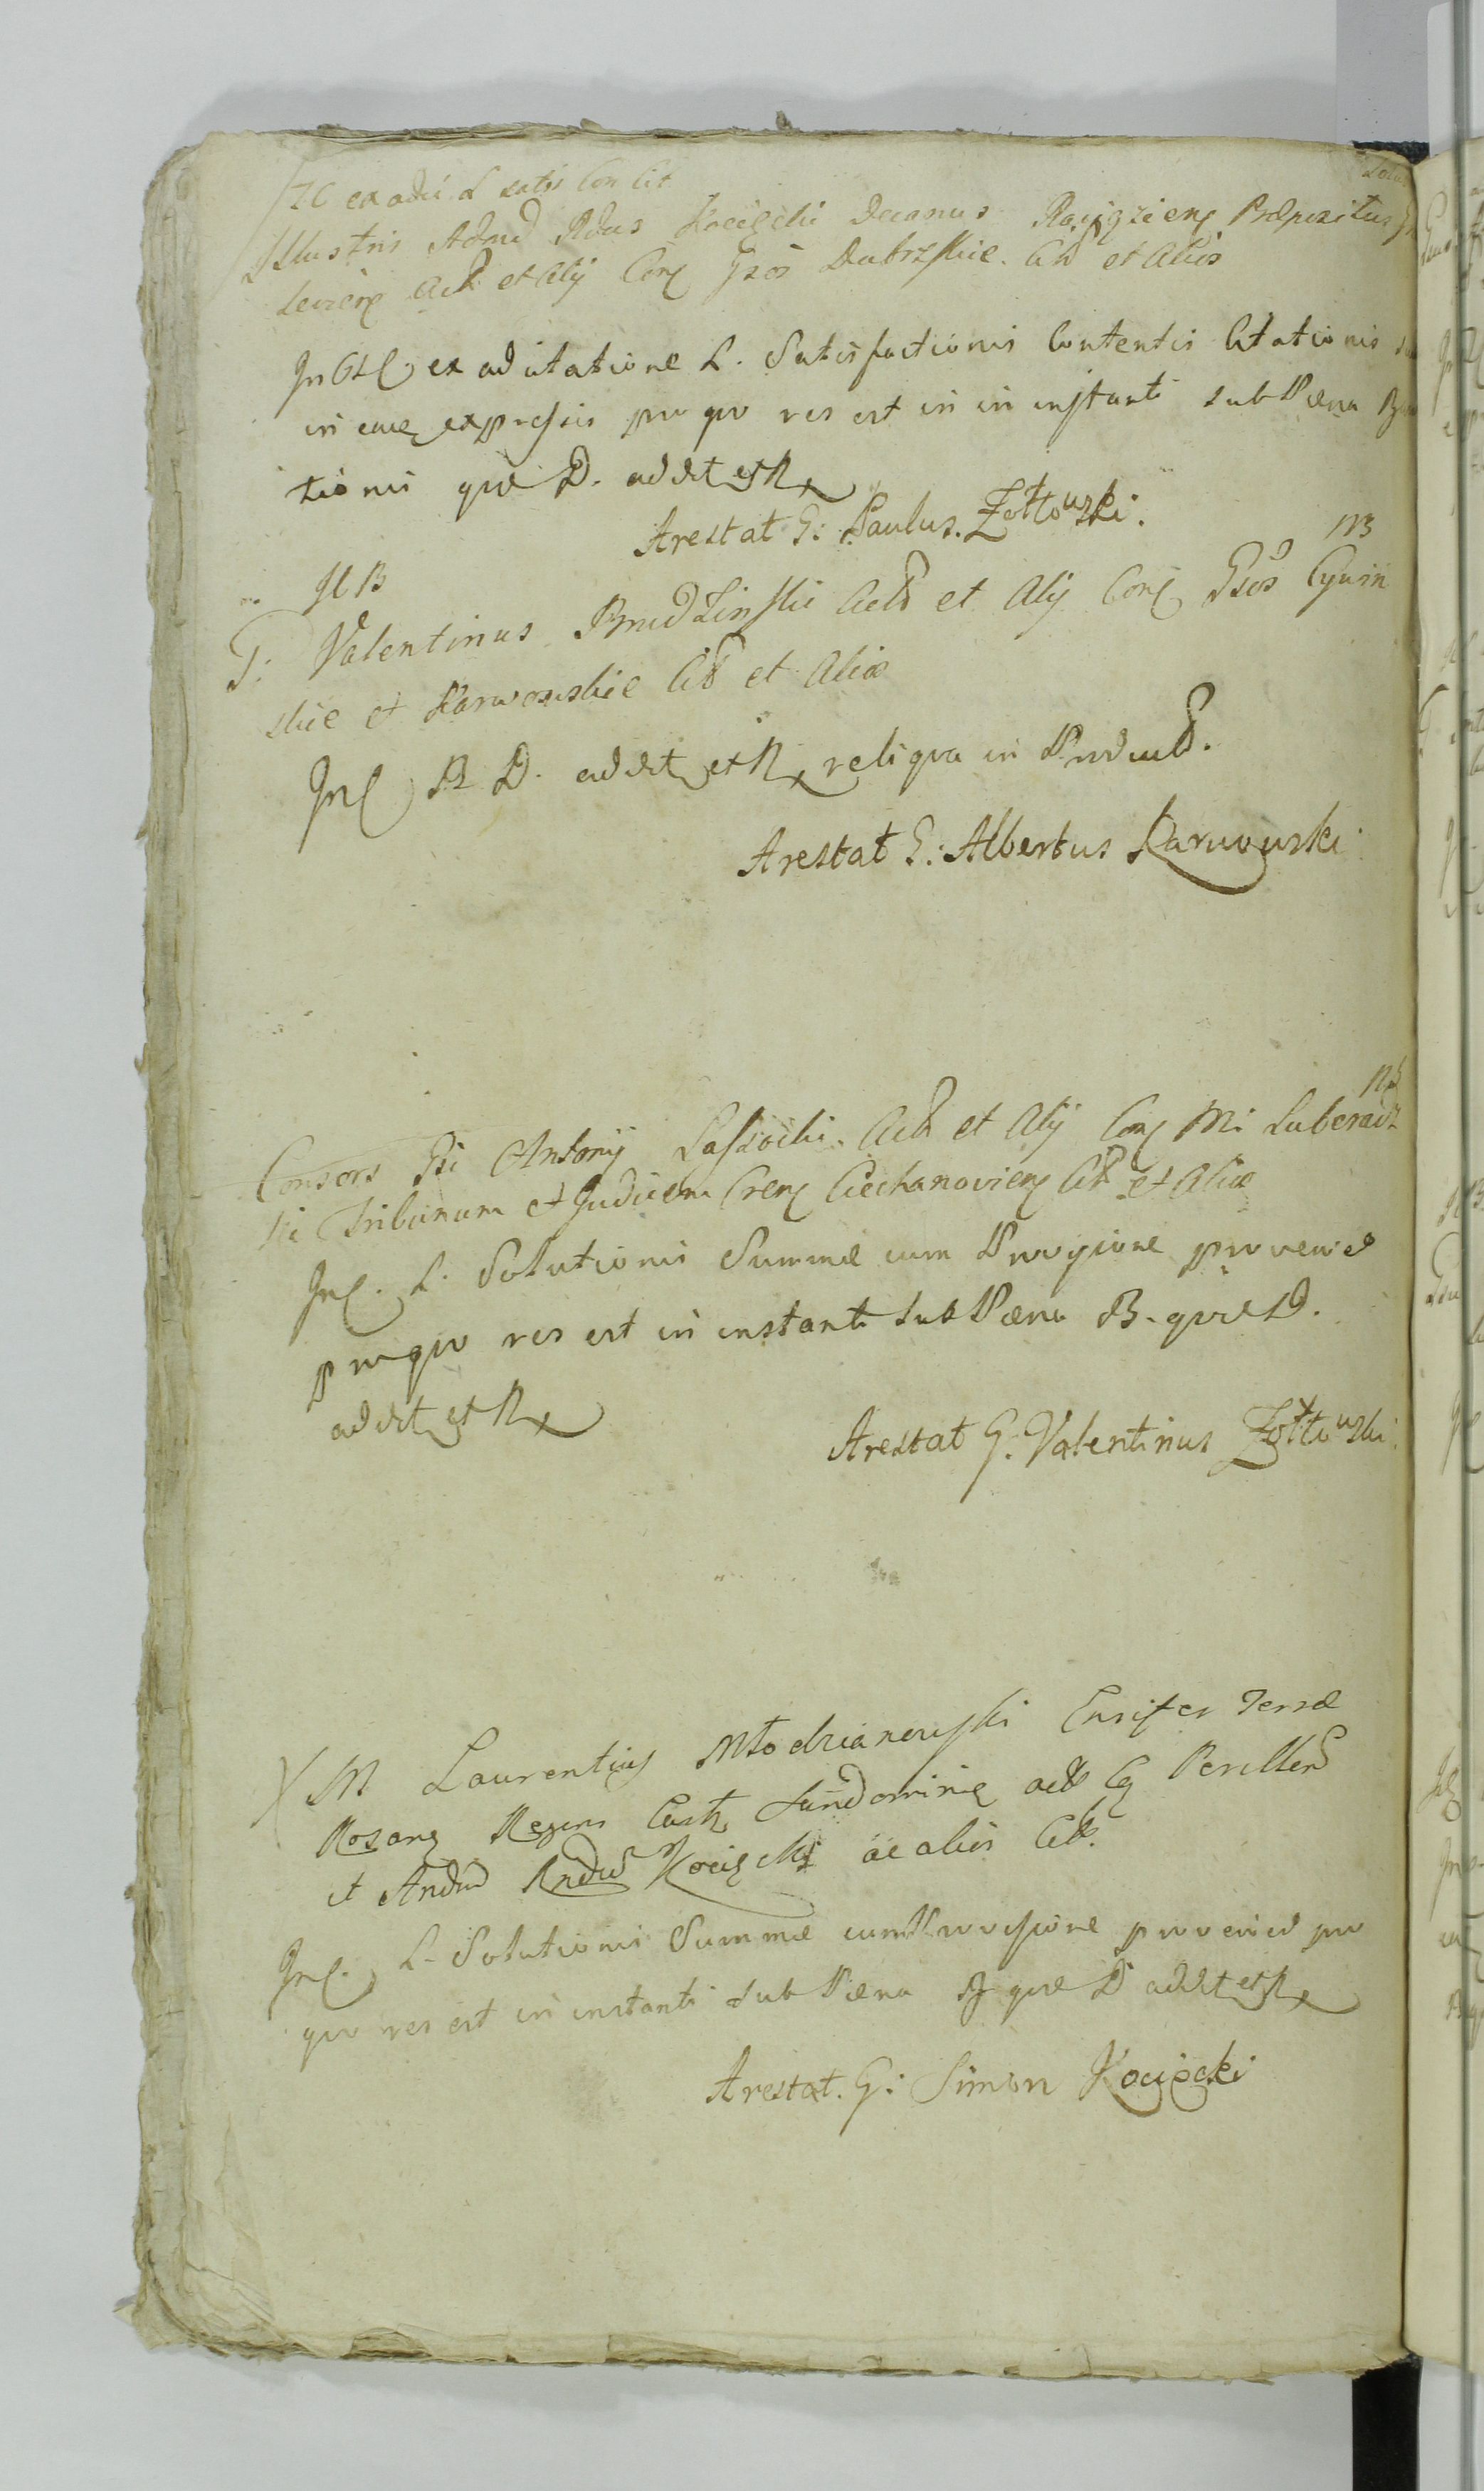 IC ex adci L satis Con Cit
Illustris Admd Rdus Kocięcki Decanus Raciązien Præpositus
leviens Act et Alij Con Gsos Dabrskie Cit et Alios
In ex ad citatione L. Satisfactionis Contentis Citationis
in eaq expressis pro quo res est in instanti sub Pæna
tionis quæ D. addit et R
Arestat G: Paulus Zołtowski.
113
G: Valentinus Brudzinski Act et Alij Con Gsos Cywin
skie et Karwowskie Cit et Aliæ
In B D. addit et R reliqua in Prdicib.
Arestat G: Albertus Karwowski
Consors Gsi Antonij Lassocki Act et Alij Con M: Luberadz
ki Tribunum et Judicem Cren Ciechanovien Cit et Aliæ
In L. Solutionis Summæ cum Provisione proven et
pro quo res est in instanti sub Pæna B. quæ D.
addit et R
Arestat G: Valentinus Zołtowski
M Laurentius Młodzianowski Ensifer Terræ
Rozan Regens Cast Sandomirie act Perillem
et Andm Rndum Kocięcki ac alios Cit.
In L. Solutionis Summæ cum Provisione proven et pro
quo res est in instanti sub Pæna B quæ D addit et R
Arestat. G: Simon Kocięcki